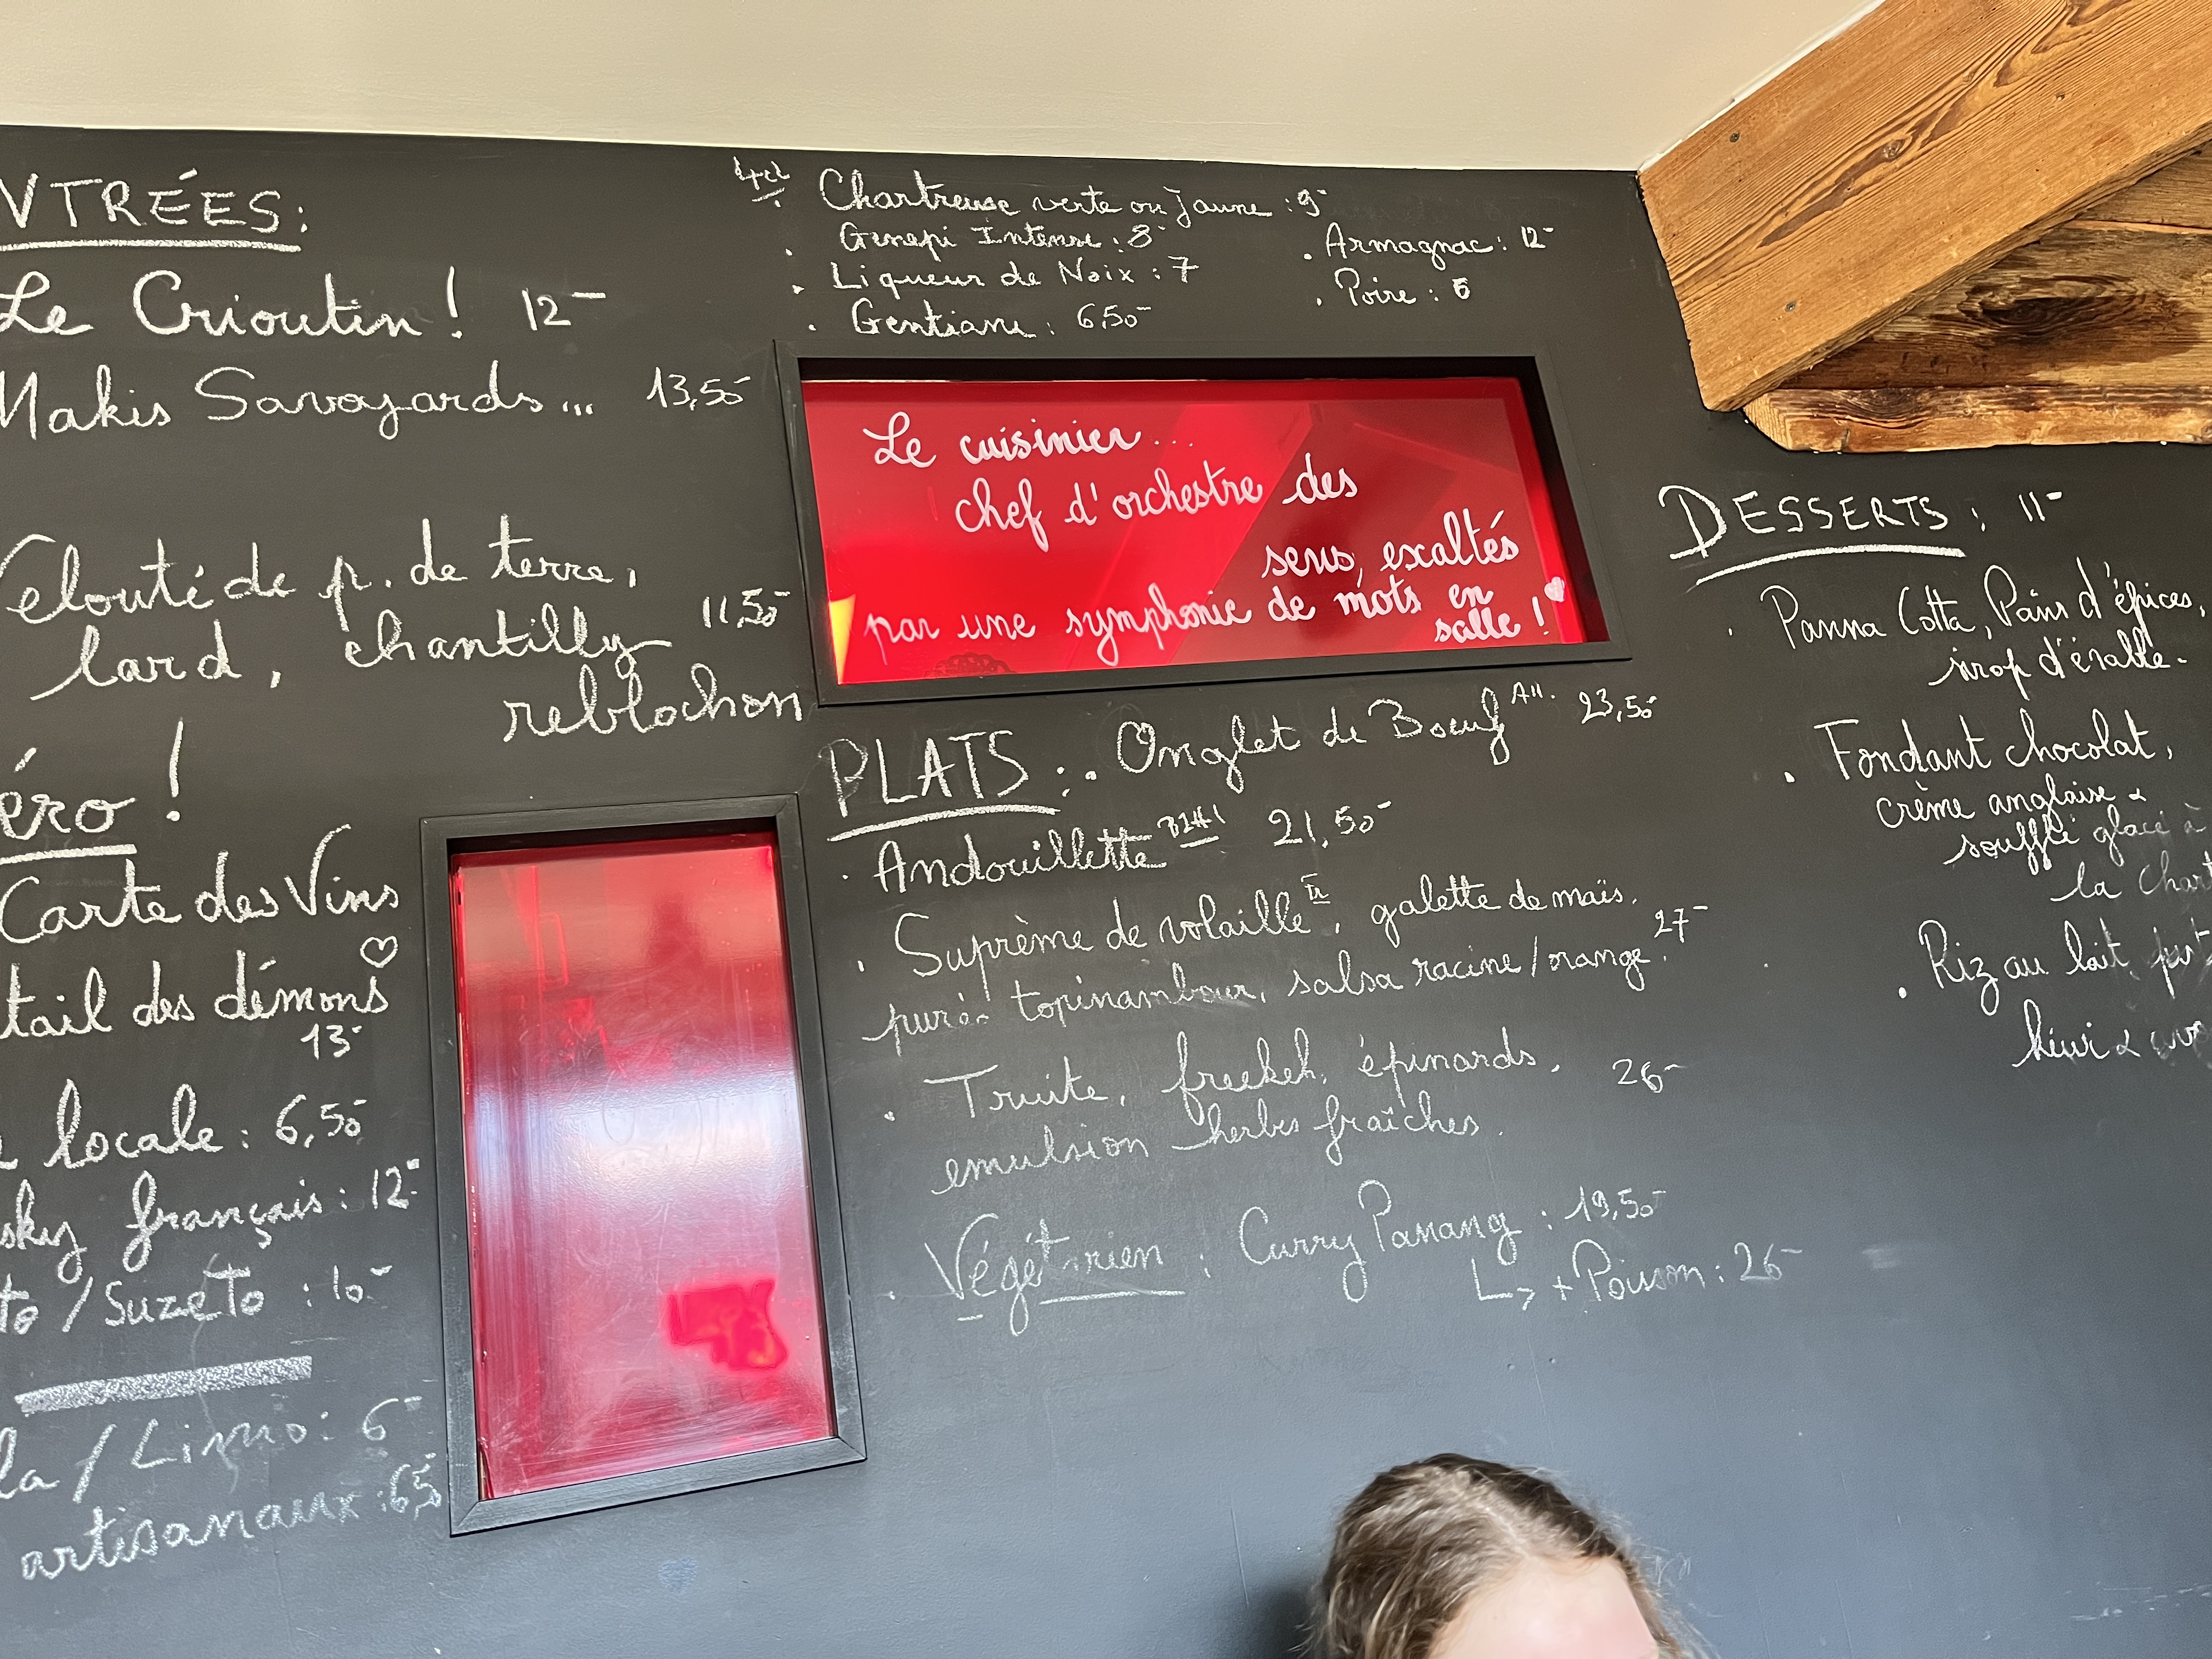 NTRÉES:
Le Crioutin ! 12-
Makis Savoyards... 13,50-
Velouté de p. de terre,
lard, chantilly 11,50-
reblochon
éro !
Carte des Vins
tail des démons
13-
locale : 6,50-
sky français : 12-
to / Suzeto : 10-
la / Limo : 6-
artisanaux : 6,5
4cl
Chartreuse verte ou jaune : 9-
. Genepi Intense : 8-
. Liqueur de Noix : 7
. Gentiane : 6,50-
. Armagnac : 12-
. Poire : 6
Le cuisinier...
chef d'orchestre des
sens, exaltés
par une symphonie de mots en
salle !
PLATS : . Onglet de Boeuf All. 23,50-
. Andouillette 21,50-
. Suprème de volaille Fr, galette de maïs,
purée topinambour, salsa racine/orange. 27-
. Truite, freekeh, épinards, 26-
emulsion herbes fraîches.
. Végétarien : Curry Panang : 19,50-
↳ + Poisson : 26-
DESSERTS : 11-
. Panna Cotta, Pain d'épices,
sirop d'érable.
. Fondant chocolat,
crème anglaise &
soufflé glacé à
la chart
. Riz au lait,
kiwi &